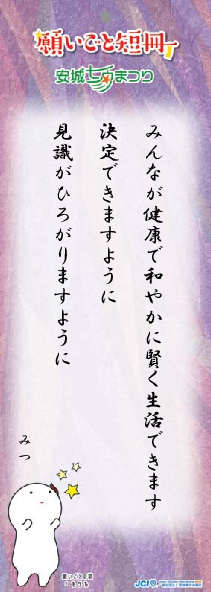 願いごと短冊
安城七夕まつり
みんなが健康で和やかに賢く生活できます
決定できますように
見識がひろがりますように
みつ
JCI